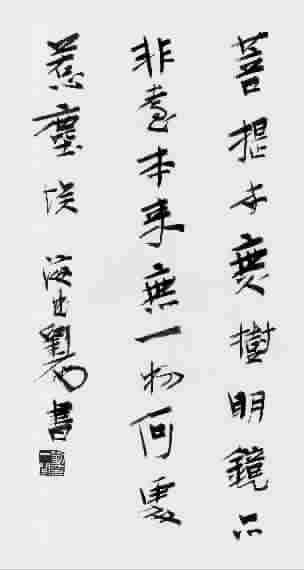 菩提本無樹明鏡亦
非臺本來無一物何處
惹塵埃 劉書